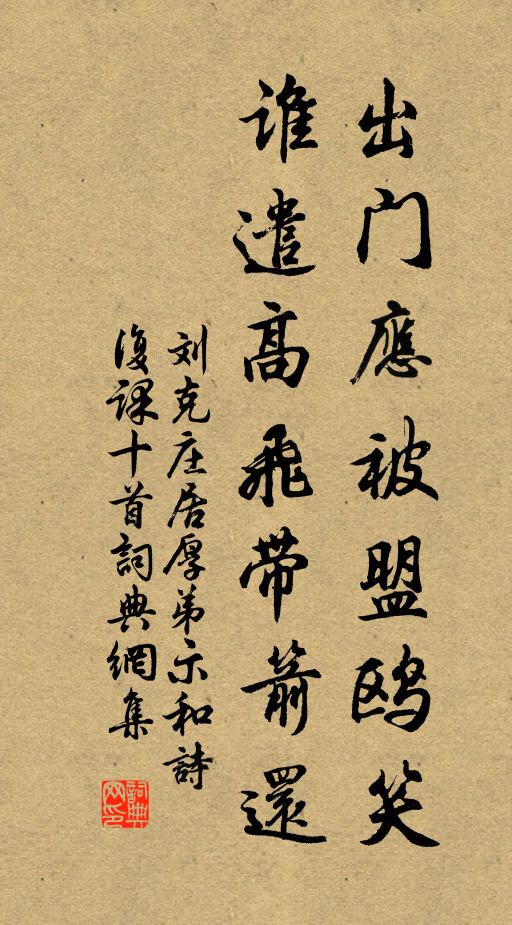 出门應被盟鸥笑
谁遣高飛带箭還
刘克庄居厚弟示和詩
復课十首詞典網集
詞典网印